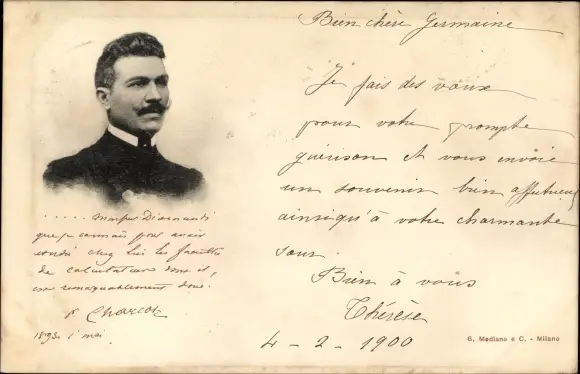 Bien chère Germaine
Je fais des vœux
pour votre prompte
guérison et vous envoie
un souvenir bien affectueux
ainsi qu'à votre charmante
sœur.
Bien à vous
Thérèse
4 - 2 - 1900
..... Monsieur Diamandi
que je connais pour avoir
étudié chez lui les facultés
de calculateur dont il
est remarquablement doué.
Charcot
1893 1 mai
G. Modiano e C. - Milano